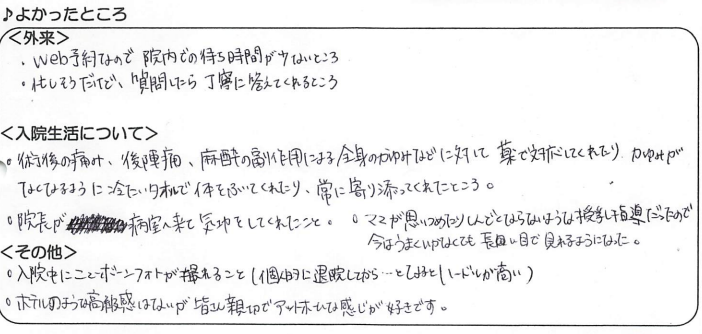 ♪よかったところ
＜外来＞
・Web予約なので 院内での待ち時間が少ないところ
・忙しそうだけど、質問したら丁寧に答えてくれるところ
＜入院生活について＞
○術後の痛み、後陣痛、麻酔の副作用による全身のかゆみなどに対して 薬で対応してくれたり かゆみが
なくなるように冷たいタオルで体をふいてくれたり、常に寄り添ってくれたところ。
○院長が 病室へ来て 気功をしてくれたこと。 ○ママが思いつめたりしんどくならないような授乳指導だったので
今はうまくいかなくても長い目で見れるようになった。
＜その他＞
○入院中にニューボーンフォトが撮れること(個人的に退院してから…となるとハードルが高い)
○ホテルのような高級感はないが皆さん親切でアットホームな感じが好きです。